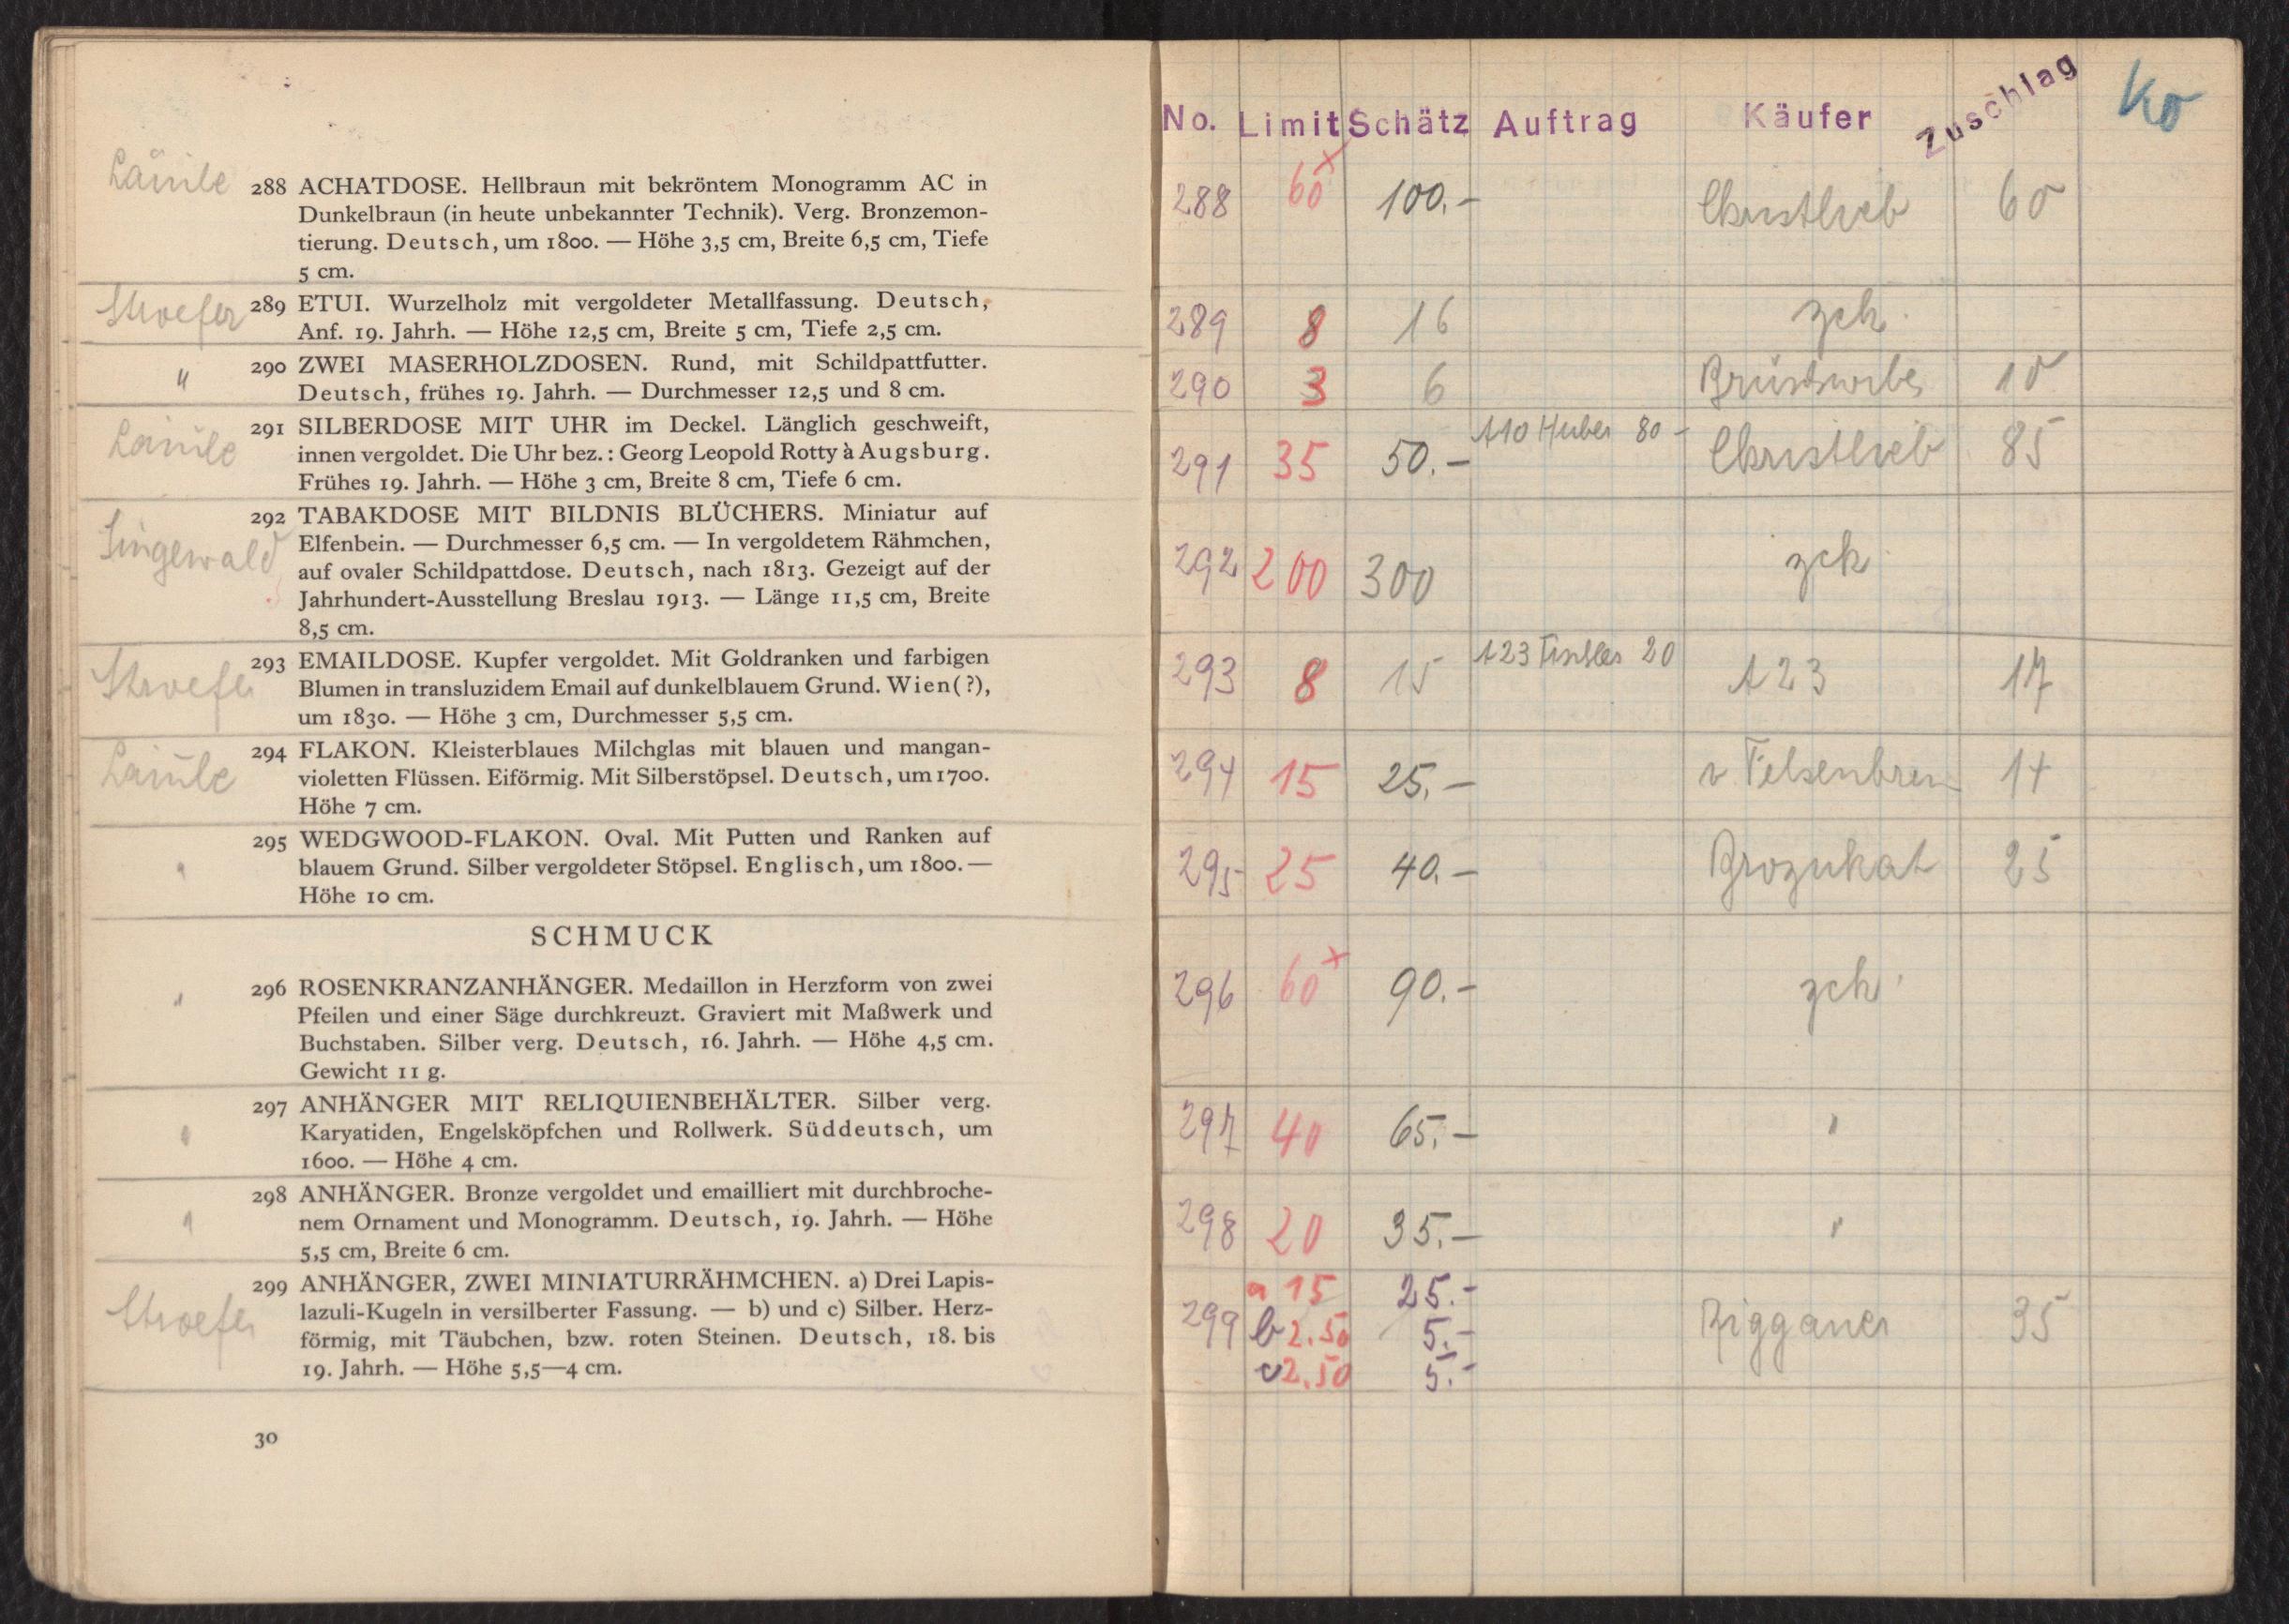 288 ACHATDOSE. Hellbraun mit bekröntem Monogramm AC in
Dunkelbraun (in heute unbekannter Technik). Verg. Bronzemon-
tierung. Deutsch, um 1800. — Höhe 3,5 cm, Breite 6,5 cm, Tiefe
5 cm.
Stroefer
289 ETUI. Wurzelholz mit vergoldeter Metallfassung. Deutsch,
Anf. 19. Jahrh. — Höhe 12,5 cm, Breite 5 cm, Tiefe 2,5 cm.
" 290 ZWEI MASERHOLZDOSEN. Rund, mit Schildpattfutter.
Deutsch, frühes 19. Jahrh. — Durchmesser 12,5 und 8 cm.
291 SILBERDOSE MIT UHR im Deckel. Länglich geschweift,
innen vergoldet. Die Uhr bez.: Georg Leopold Rotty à Augsburg.
Frühes 19. Jahrh. — Höhe 3 cm, Breite 8 cm, Tiefe 6 cm.
292 TABAKDOSE MIT BILDNIS BLÜCHERS. Miniatur auf
Singewald
Elfenbein. — Durchmesser 6,5 cm. — In vergoldetem Rähmchen,
auf ovaler Schildpattdose. Deutsch, nach 1813. Gezeigt auf der
Jahrhundert-Ausstellung Breslau 1913. — Länge 11,5 cm, Breite
8,5 cm.
Stroefer
293 EMAILDOSE. Kupfer vergoldet. Mit Goldranken und farbigen
Blumen in transluzidem Email auf dunkelblauem Grund. Wien(?),
um 1830. — Höhe 3 cm, Durchmesser 5,5 cm.
294 FLAKON. Kleisterblaues Milchglas mit blauen und mangan-
violetten Flüssen. Eiförmig. Mit Silberstöpsel. Deutsch, um 1700.
Höhe 7 cm.
295 WEDGWOOD-FLAKON. Oval. Mit Putten und Ranken auf
blauem Grund. Silber vergoldeter Stöpsel. Englisch, um 1800. —
Höhe 10 cm.
SCHMUCK
" 296 ROSENKRANZANHÄNGER. Medaillon in Herzform von zwei
Pfeilen und einer Säge durchkreuzt. Graviert mit Maßwerk und
Buchstaben. Silber verg. Deutsch, 16. Jahrh. — Höhe 4,5 cm.
Gewicht 11 g.
297 ANHÄNGER MIT RELIQUIENBEHÄLTER. Silber verg.
Karyatiden, Engelsköpfchen und Rollwerk. Süddeutsch, um
1600. — Höhe 4 cm.
298 ANHÄNGER. Bronze vergoldet und emailliert mit durchbroche-
nem Ornament und Monogramm. Deutsch, 19. Jahrh. — Höhe
5,5 cm, Breite 6 cm.
299 ANHÄNGER, ZWEI MINIATURRÄHMCHEN. a) Drei Lapis-
Stroefer
lazuli-Kugeln in versilberter Fassung. — b) und c) Silber. Herz-
förmig, mit Täubchen, bzw. roten Steinen. Deutsch, 18. bis
19. Jahrh. — Höhe 5,5—4 cm.
30
No. Limit Schätz Auftrag Käufer Zuschlag Ko
288 60x 100.- Christlieb 60
289 8 16 zck.
290 3 6 10
291 35 50.- A10 Huber 80 - Christlieb 85
292 200 300 zck
293 8 15 A23 20 A23 17
294 15 25.- v Felsenbren 14
295 25 40.- Brozukat 25
296 60x 90.- zck.
297 40 65.- "
298 20 35.- "
a 15 25.-
299 b 2.50 5.- 35
c 2.50 5.-